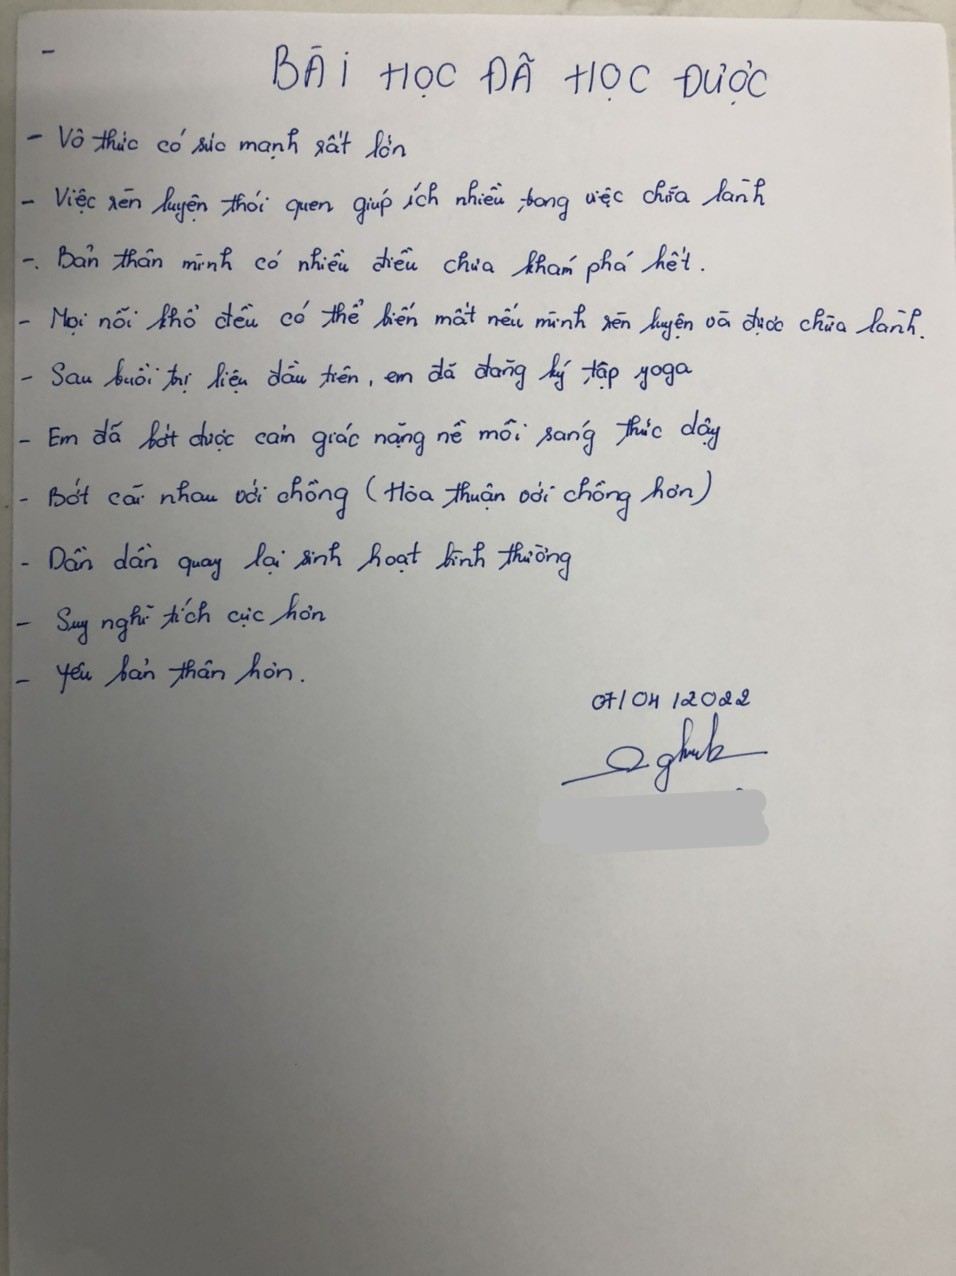 -
BÀI HỌC ĐÃ HỌC ĐƯỢC
- Vô thức có sức mạnh rất lớn
- Việc rèn luyện thói quen giúp ích nhiều trong việc chữa lành
-. Bản thân mình có nhiều điều chưa khám phá hết.
- Mọi nỗi khổ đều có thể biến mất nếu mình rèn luyện và được chữa lành.
- Sau buổi trị liệu đầu tiên, em đã đăng ký tập yoga
- Em đã bớt được cảm giác nặng nề mỗi sáng thức dậy
- Bớt cãi nhau với chồng (Hòa thuận với chồng hơn)
- Dần dần quay lại sinh hoạt bình thường
- Suy nghĩ tích cực hơn
- Yêu bản thân hơn.
07/04/2022